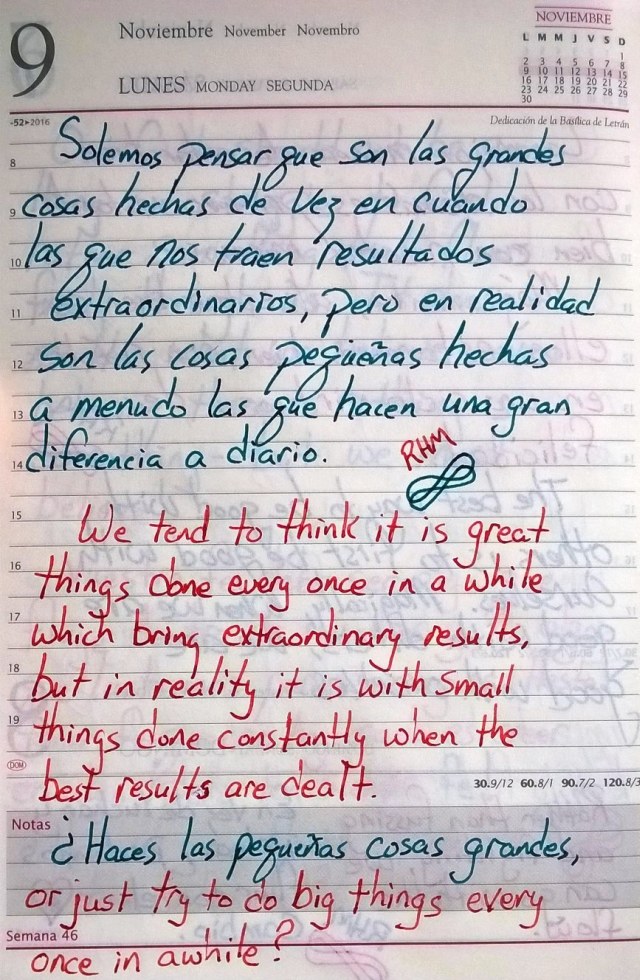 9
Noviembre November Novembro
LUNES MONDAY SEGUNDA
NOVIEMBRE
L M M J V S D
1
2 3 4 5 6 7 8
9 10 11 12 13 14 15
16 17 18 19 20 21 22
23 24 25 26 27 28 29
30
-52▸2016
Dedicación de la Basílica de Letrán
8 Solemos pensar que son las grandes
9 cosas hechas de vez en cuando
10 las que nos traen resultados
11 extraordinarios, pero en realidad
12 son las cosas pequeñas hechas
13 a menudo las que hacen una gran
14 diferencia a diario.
RHM
15 We tend to think it is great
16 things done every once in a while
17 which bring extraordinary results,
18 but in reality it is with small
19 things done constantly when the
DOM best results are dealt.
30.9/12 60.8/1 90.7/2 120.8/3
Notas
¿Haces las pequeñas cosas grandes,
or just try to do big things every
Semana 46
once in awhile?